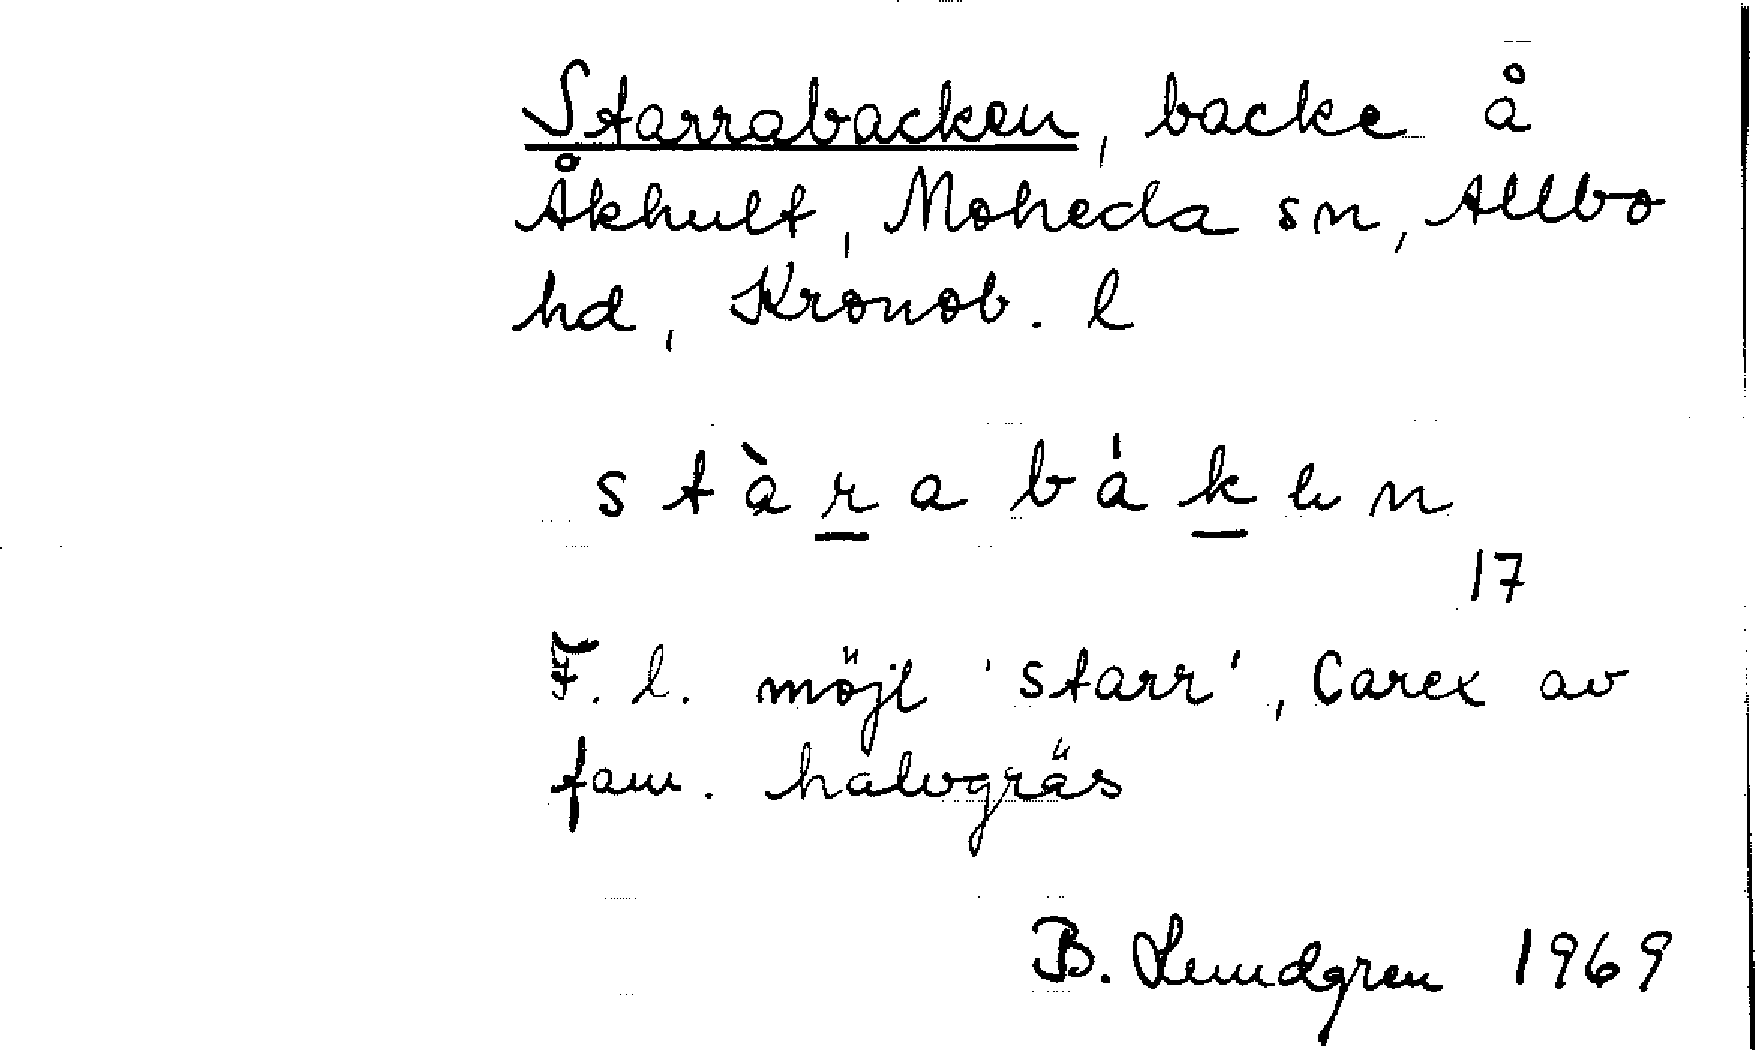 Starrabacken, backe å
Åkhult, Moheda sn, Allbo
hd, Kronob. l
stàrabákən
17
F. l. möjl 'starr', Carex av
fam. halvgräs
B. Lundgren 1969